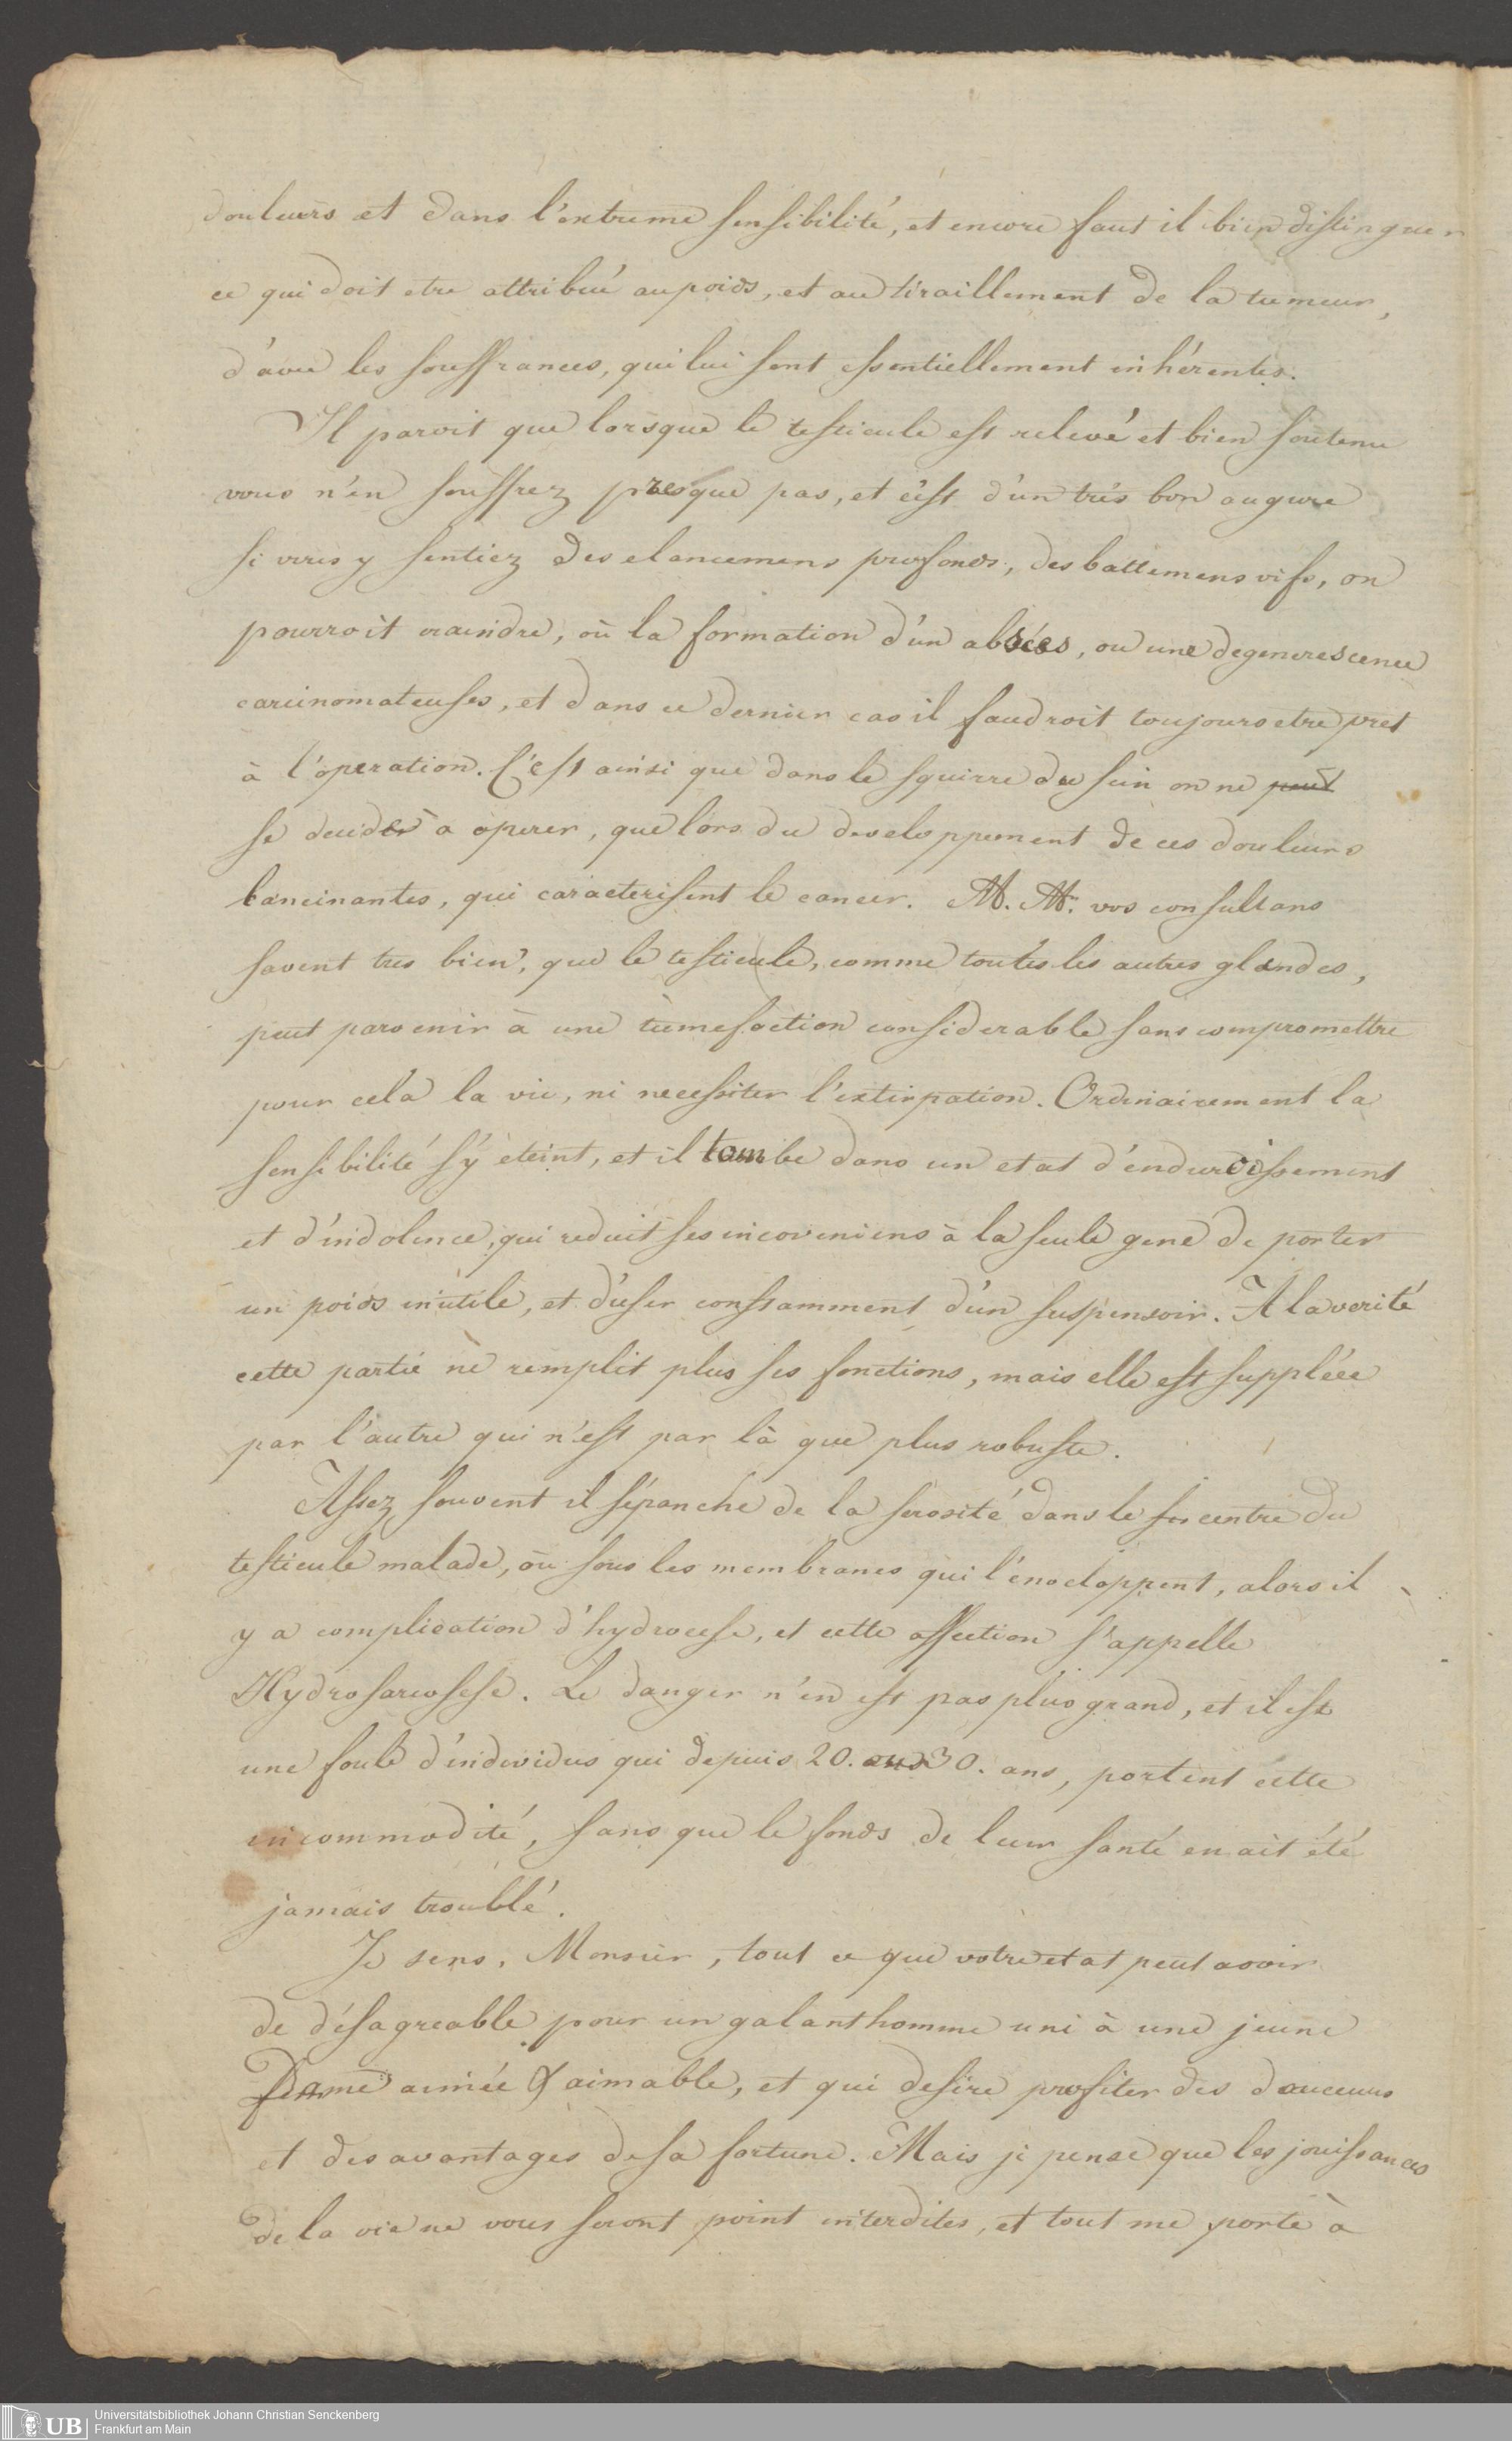 douleurs et dans l'extreme sensibilité, et encore faut il bien distinguer
ce qui doit etre attribué au poids, et au tiraillement de la tumeur,
d'avec les souffrances, qui lui sont essentiellement inhérentes.
Il paroit que lorsque le testicule est relevé et bien soutenu
vous n'en souffrez presque pas, et c'est d'un trés bon augure
si vous y sentiez des elancemens profonds, des battemens vifs, on
pourroit craindre, où la formation d'un absées, ou une degenerescence
carcinomateuses, et dans ce dernier cas il faudroit toujours etre pret
à l'operation. C'est ainsi que dans le squirre du sein on ne peut
se decider a operer, que lors du developpement de ces douleurs
lancinantes, qui caracterisent le cancer. M. Mr. vos consultans
savent tres bien, que le testicule, comme toutes les autres glandes,
peut parvenir à une tumefaction considerable sans compromettre
pour cela la vie, ni necessiter l'extirpation. Ordinairement la
sensibilité s'y eteint, et il tombe dans un etat d'endurcissement
et d'indolence, qui reduit ses incoveniens à la seule gene de porter
un poids inutile, et d'user constamment d'un suspensoir. A la verité
cette partie ne remplit plus ses fonctions, mais elle est suppléee
par l'autre qui n'est par là que plus robuste.
Assez souvent il s'épanche de la serosité dans le centre du
testicule malade, où sous les membranes qui l'enveloppent, alors il
y a complication d'hydrocese, et cette affection s'appelle
Hydrosarcosese. Le danger n'en est pas plus grand, et il est
une foule d'individus qui depuis 20. 30. ans, portent cette
incommodité, sans que le fonds de leur santé en ait été
jamais troublé.
Je sens, Monsier, tout ce que votre etat peut avoir
de désagreable pour un galanthomme uni à une jeune
Dame aimée & aimable, et qui desire profiter des douceurs
et des avantages de sa fortune. Mais je pense que les jouissances
de la vie ne vous seront point interdites, et tout me porte à
UB
Universitätsbibliothek Johann Christian Senckenberg
Frankfurt am Main